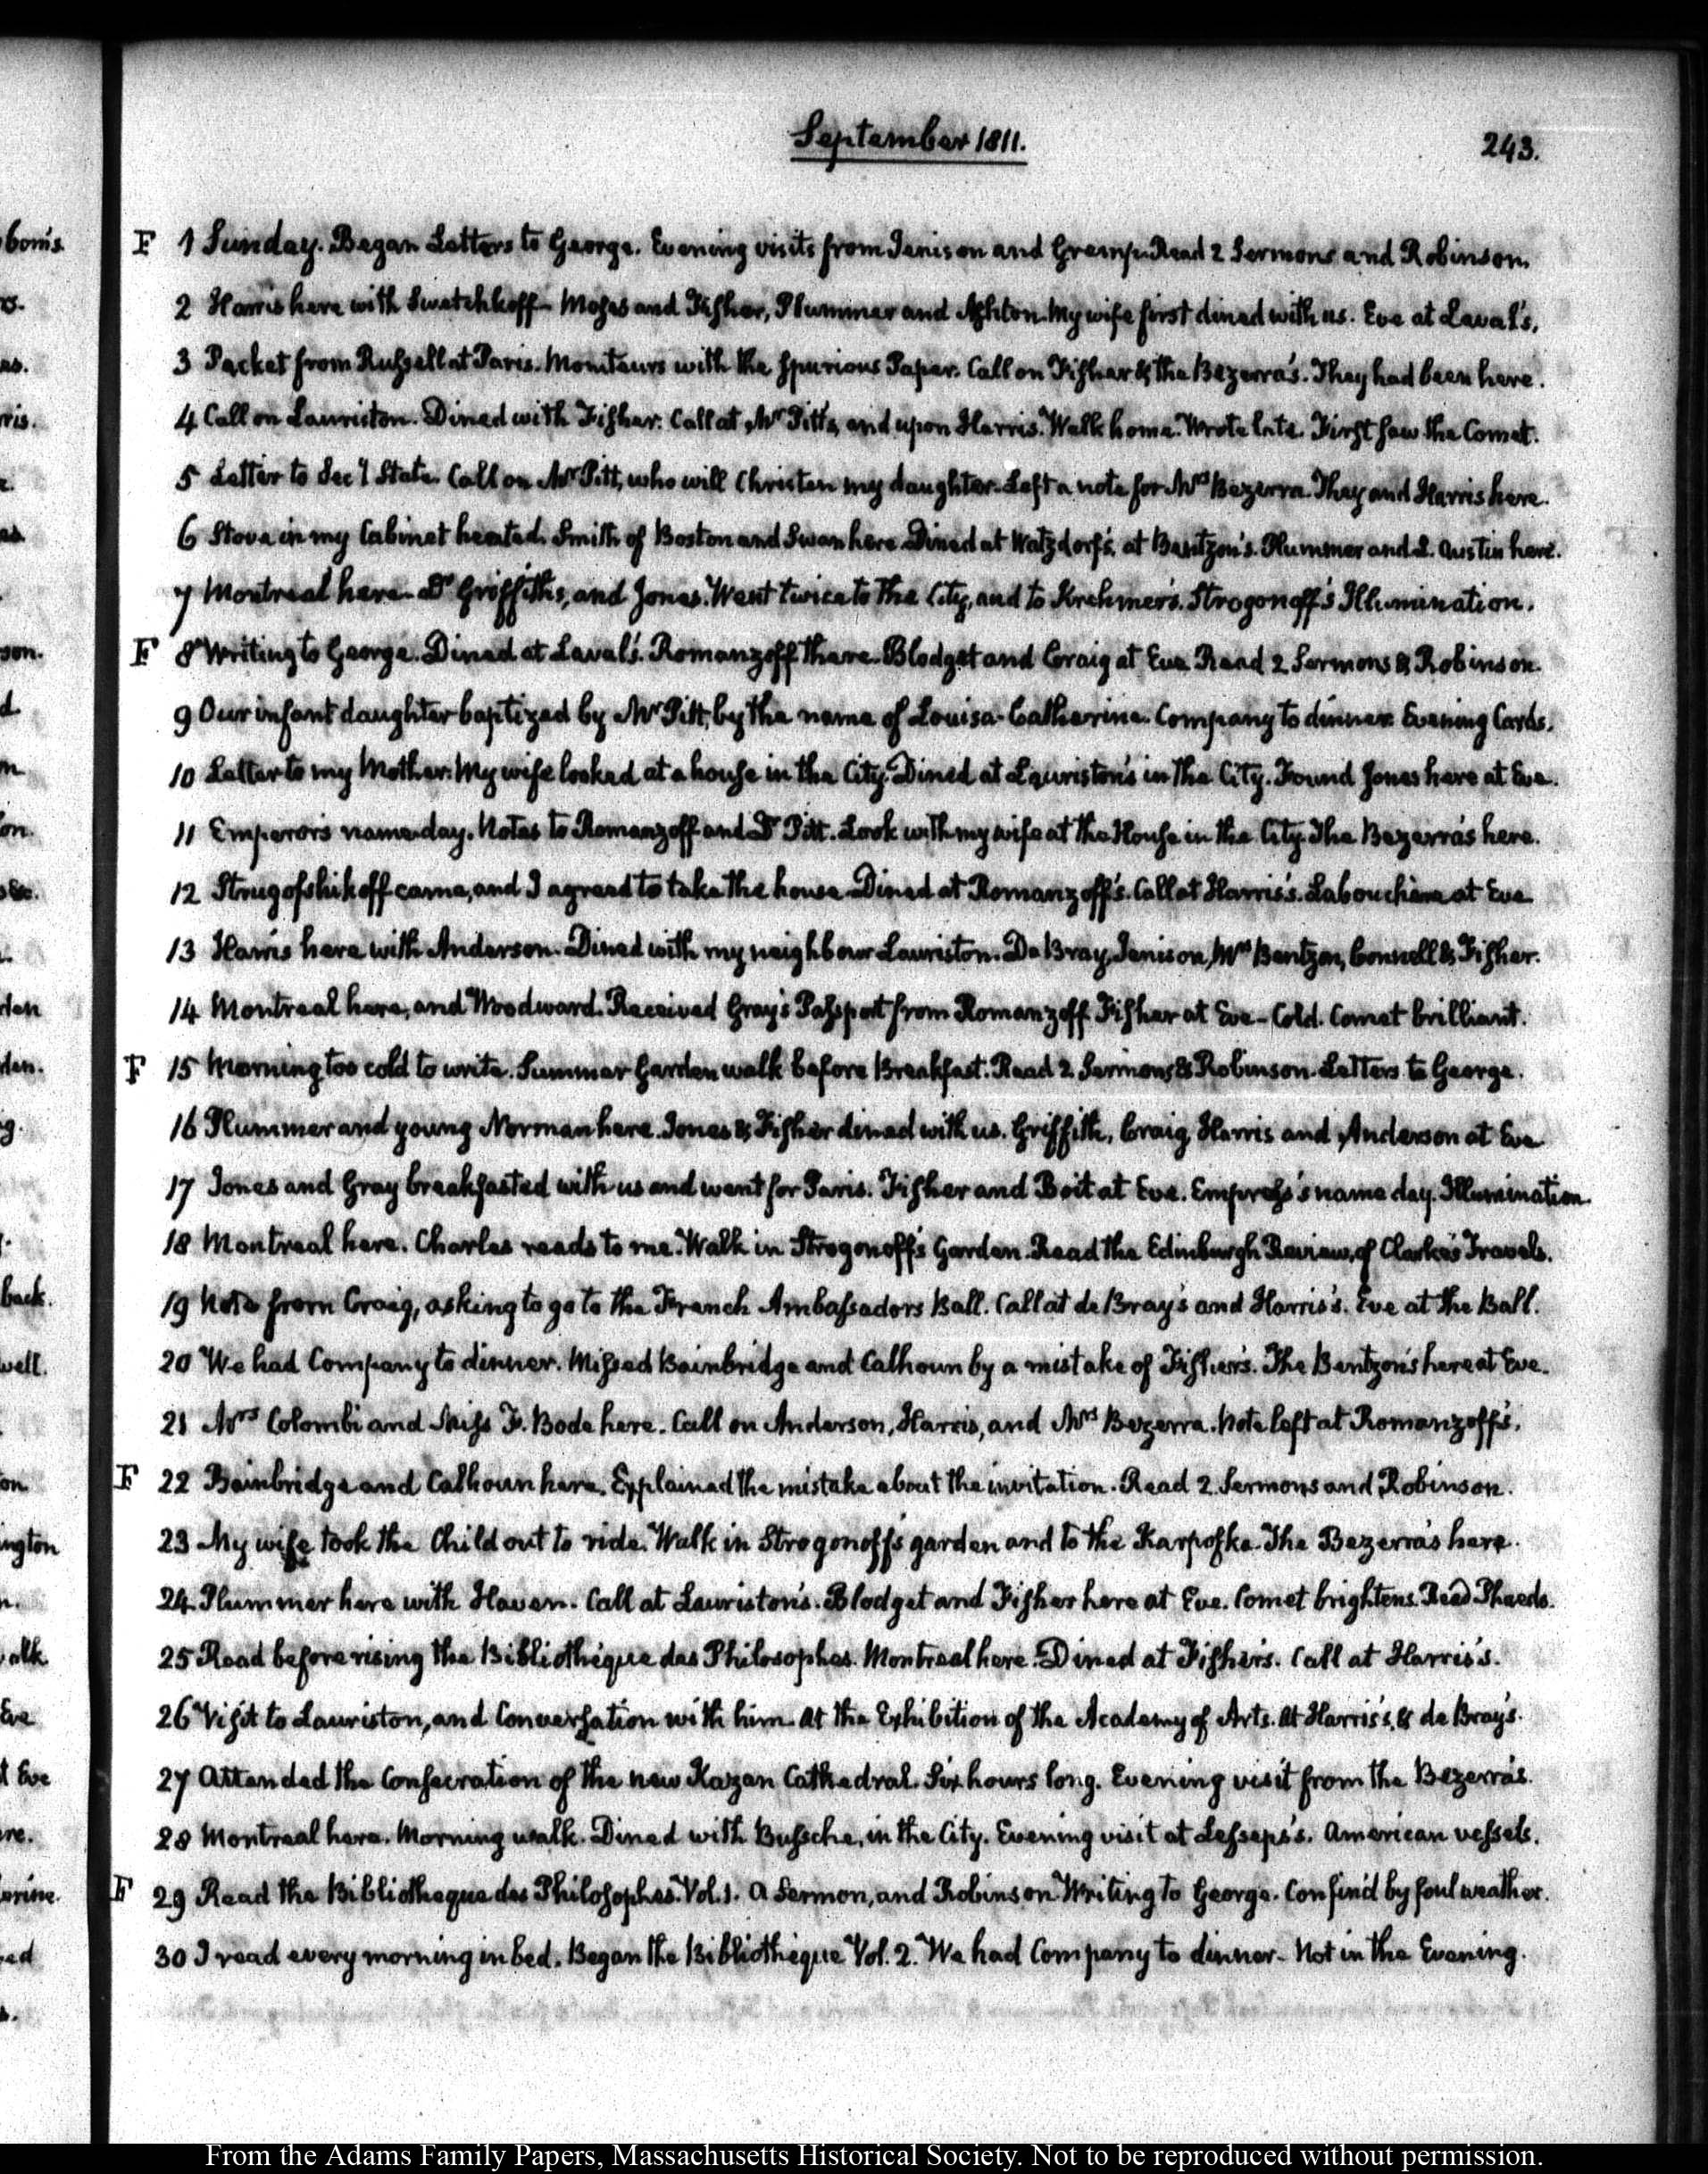 September 1811.
243.
F 1 Sunday. Began Letters to George. Evening visits from Jenison and Gremp. Read 2 Sermons and Robinson.
2 Harris here with Swetchkoff. Moses and Fisher, Plummer and Ashton. My wife first dined with us. Eve at Laval's.
3 Packet from Russell at Paris. Moniteurs with the spurious Paper. Call on Fisher & the Bezerra's. They had been here.
4 Call on Lauriston. Dined with Fisher. Call at Mr Pitt's, and upon Harris. Walk home. Wrote late. First saw the Comet.
5 Letter to Sec'y State. Call on Mr Pitt, who will Christen my daughter. Left a note for Mrs Bezerra. They and Harris here.
6 Stove in my Cabinet heated. Smith of Boston and Swan here. Dined at Watzdorf's, at Bentzon's. Plummer and L. Austin here.
7 Montreal here. Dr Griffiths, and Jones. Went twice to the City, and to Krehmer's. Strogonoff's Illumination.
F 8 Writing to George. Dined at Laval's. Romanzoff there. Blodget and Craig at Eve. Read 2 Sermons & Robinson.
9 Our infant daughter baptized by Mr Pitt, by the name of Louisa-Catherine. Company to dinner. Evening Cards.
10 Letter to my Mother. My wife looked at a house in the City. Dined at Lauriston's in the City. Found Jones here at Eve.
11 Emperor's name-day. Notes to Romanzoff and Dr Pitt. Look with my wife at the House in the City. The Bezerra's here.
12 Strugofshikoff came, and I agreed to take the house. Dined at Romanzoff's. Call at Harris's. Labouchère at Eve
13 Harris here with Anderson. Dined with my neighbour Lauriston. De Bray, Jenison, Mrs Bentzon, Connell & Fisher.
14 Montreal here, and Woodward. Received Gray's Passport from Romanzoff. Fisher at Eve—Cold. Comet brilliant.
F 15 Morning too cold to write. Summer Garden walk before Breakfast. Read 2 Sermons & Robinson. Letters to George.
16 Plummer and young Norman here. Jones & Fisher dined with us. Griffith, Craig, Harris and Anderson at Eve
17 Jones and Gray breakfasted with us and went for Paris. Fisher and Boit at Eve. Empress's name day. Illumination.
18 Montreal here. Charles reads to me. Walk in Strogonoff's Garden. Read the Edinburgh Review, of Clarke's Travels.
19 Note from Craig, asking to go to the French Ambassadors Ball. Call at de Bray's and Harris's. Eve at the Ball.
20 We had Company to dinner. Missed Bainbridge and Calhoun by a mistake of Fisher's. The Bentzon's here at Eve.
21 Mrs Colombi and Miss F. Bode here. Call on Anderson, Harris, and Mrs Bezerra. Note left at Romanzoff's.
F 22 Bainbridge and Calhoun here. Explained the mistake about the invitation. Read 2 Sermons and Robinson.
23 My wife took the Child out to ride. Walk in Strogonoff's garden and to the Karpofka. The Bezerra's here.
24 Plummer here with Haven. Call at Lauriston's. Blodget and Fisher here at Eve. Comet brightens. Read Phaedo.
25 Read before rising the Bibliothèque des Philosophes. Montreal here. Dined at Fisher's. Call at Harris's.
26 Visit to Lauriston, and Conversation with him. At the Exhibition of the Academy of Arts. At Harris's, & de Bray's.
27 Attended the Consecration of the new Kazan Cathedral. Six hours long. Evening visit from the Bezerra's.
28 Montreal here. Morning walk. Dined with Bussche, in the City. Evening visit at Lesseps's. American vessels.
F 29 Read the Bibliotheque des Philosophes. Vol. 1. A Sermon, and Robinson. Writing to George. Confin'd by foul weather.
30 I read every morning in bed. Began the Bibliothèque Vol. 2. We had Company to dinner. Not in the Evening.
From the Adams Family Papers, Massachusetts Historical Society. Not to be reproduced without permission.